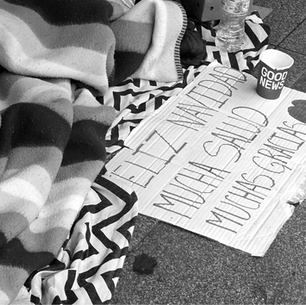 GOOD
NEWS
FELIZ NAVIDAD
MUCHA SALUD
MUCHAS GRACIAS